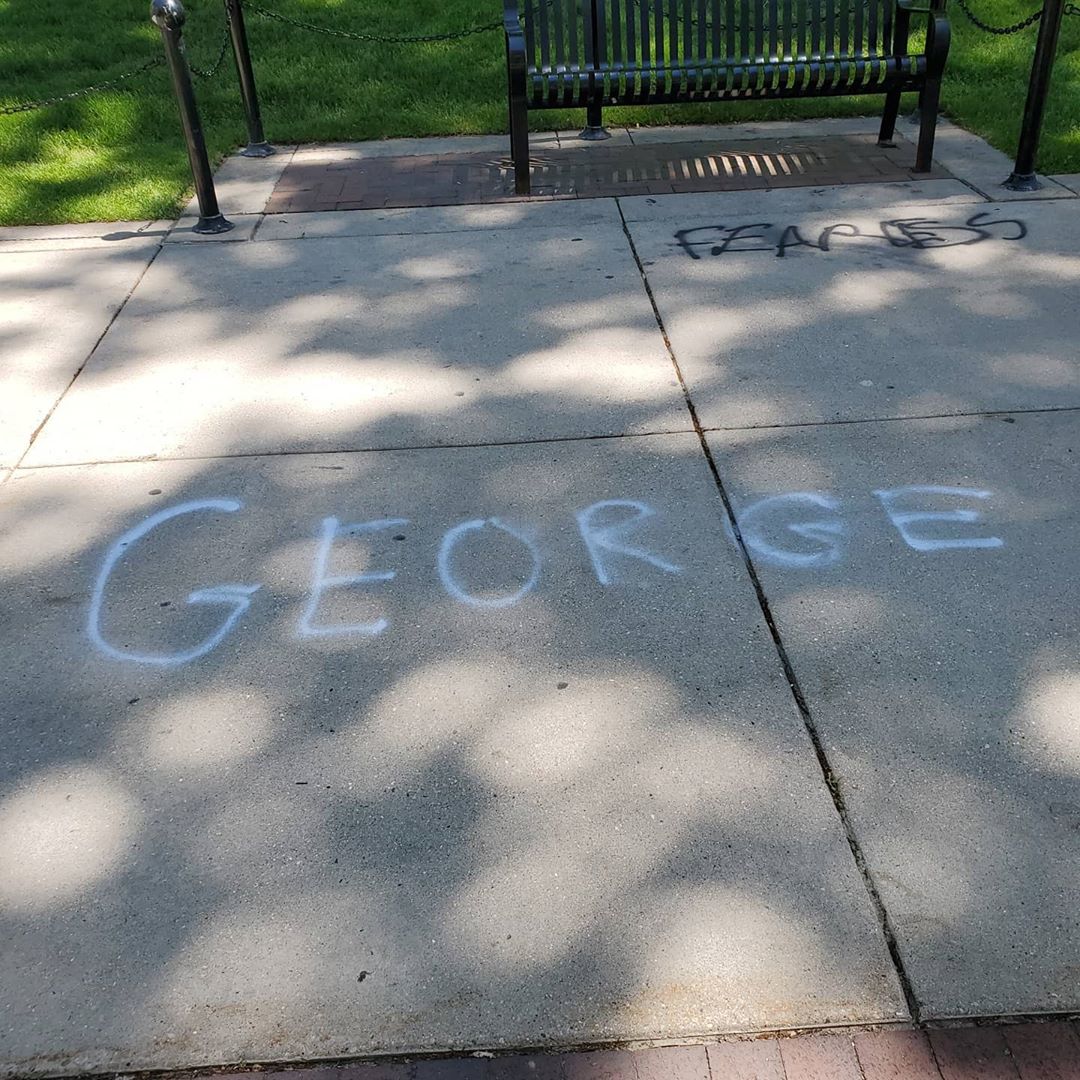 FEARLESS
GEORGE